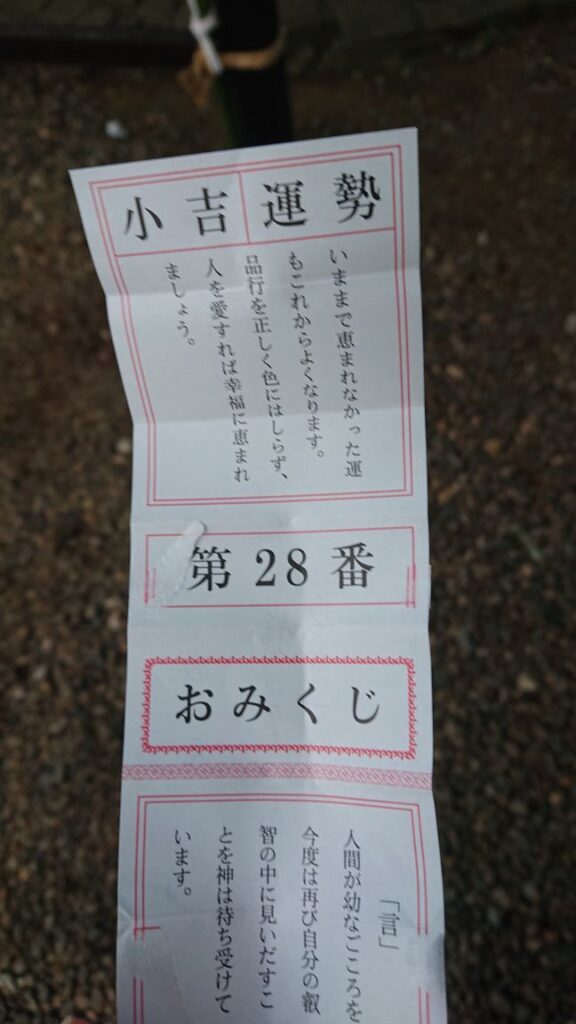 小吉 運勢
いままで恵まれなかった運
もこれからよくなります。
品行を正しく色にはしらず、
人を愛すれば幸福に恵まれ
ましょう。
第28番
おみくじ
「言」
人間が幼なごころを
今度は再び自分の叡
智の中に見いだすこ
とを神は待ち受けて
います。